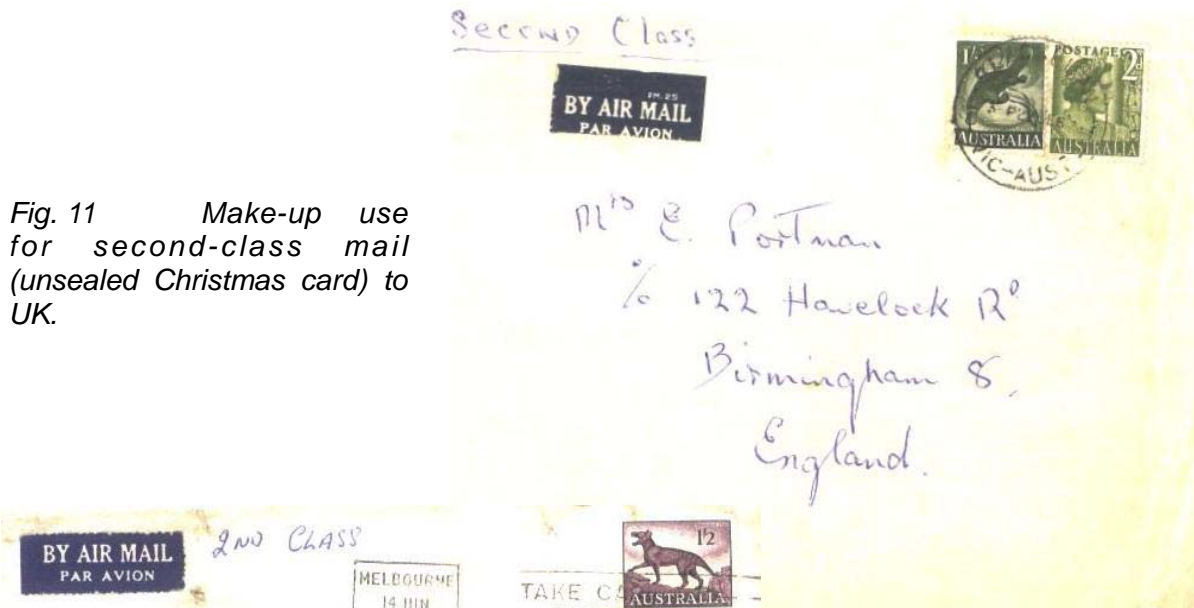 Second Class
IM.25
BY AIR MAIL
PAR AVION
1/-
AUSTRALIA
POSTAGE
2d
AUSTRALIA
VIC-AUST
Fig. 11 Make-up use
for second-class mail
(unsealed Christmas card) to
UK.
Mrs E. Portman
c/o 122 Havelock Rd
Birmingham 8,
England.
BY AIR MAIL
PAR AVION
2ND CLASS
MELBOURNE
TAKE
1/2
AUSTRALIA